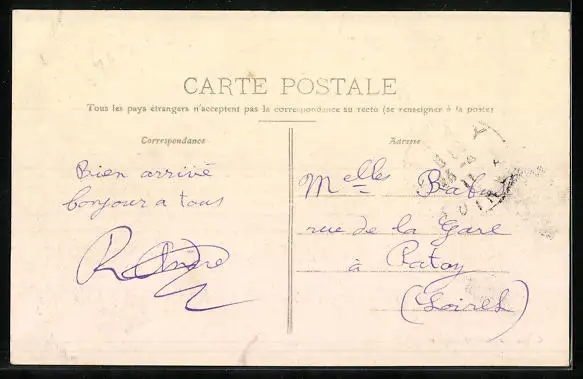 CARTE POSTALE
Tous les pays étrangers n'acceptent pas la correspondance au recto (se renseigner à la poste)
Correspondance
Adresse
Bien arrivé
bonjour à tous
Melle
rue de la Gare
à
(Loiret)